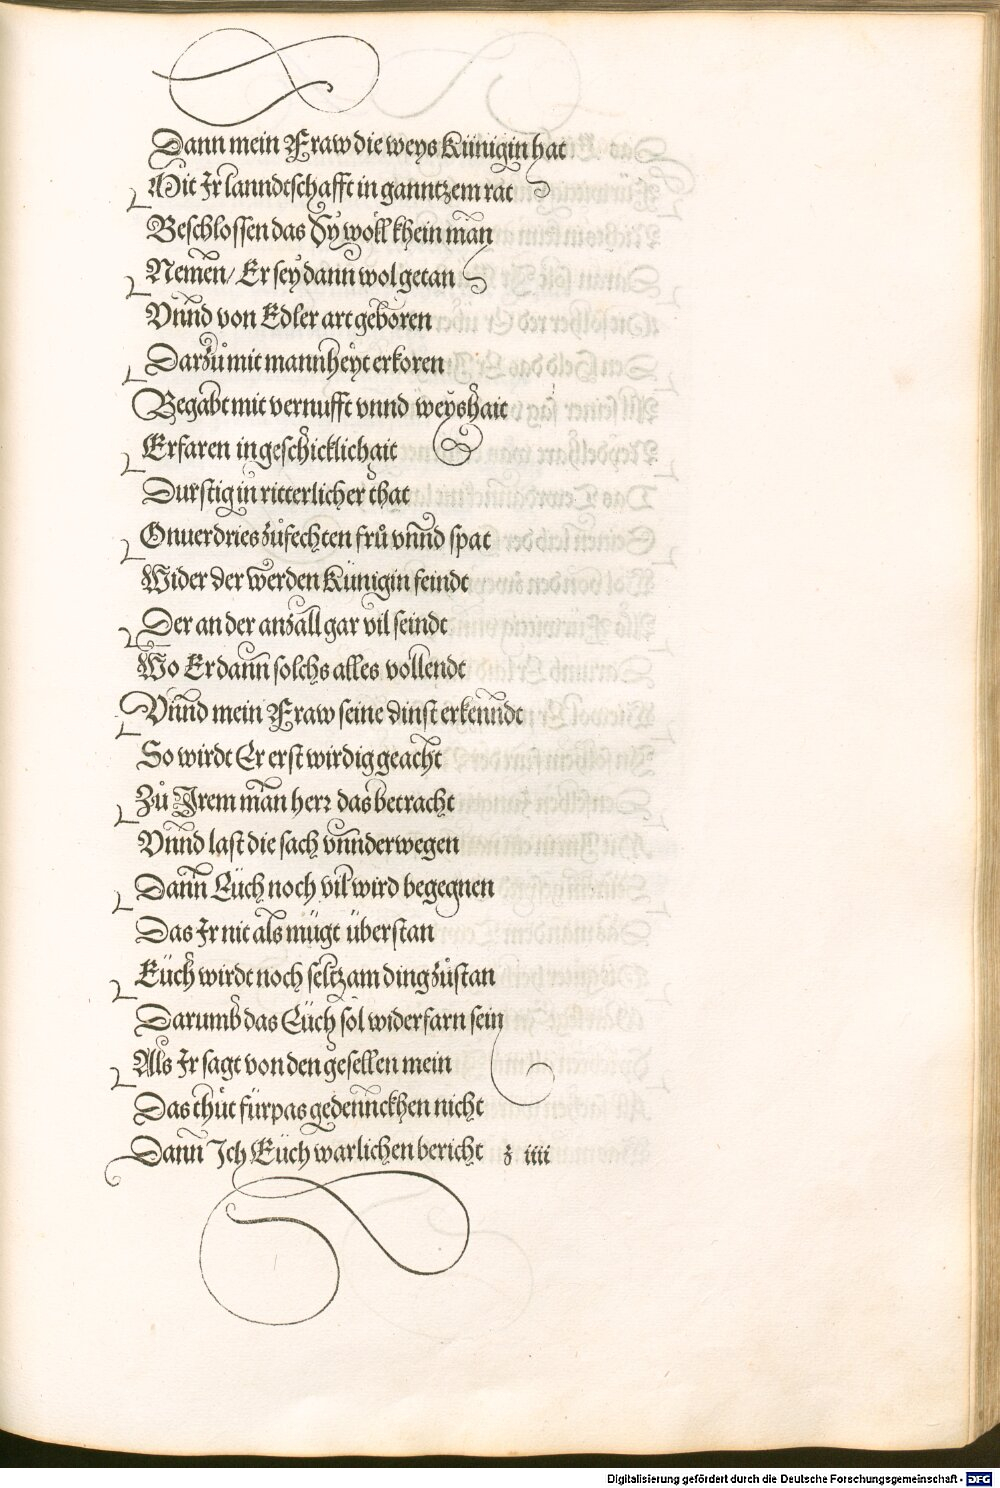 Dann mein Fraw die weys Künigin hat
Mit Ir lanndtschafft in ganntzem rat
Beschlossen das Sy wöll khein man
Nemen/ Er sey dann wol getan
Vnnd von Edler art geboren
Darzů mit mannheyt erkoren
Begabt mit vernufft vnnd weyshait
Erfaren in geschicklichait
Durstig in ritterlicher that
Onuerdries zůfechten frů vnnd spat
Wider der werden Künigin feindt
Der an der anzall gar vil seindt
Wo Er dann solchs alles vollendt
Vnnd mein Fraw seine dinst erkenndt
So wirdt Er erst wirdig geacht
Zů Irem man herr das betracht
Vnnd last die sach vnnderwegen
Dann Eüch noch vil wird begegnen
Das Ir nit als mügt überstan
Eüch wirdt noch seltzam ding zůstan
Darumb das Eüch sol widerfarn sein
Als Ir sagt von den gesellen mein
Das thůt fürpas gedennckhen nicht
Dann Ich Eüch warlichen bericht z iiii
Digitalisierung gefördert durch die Deutsche Forschungsgemeinschaft - DFG